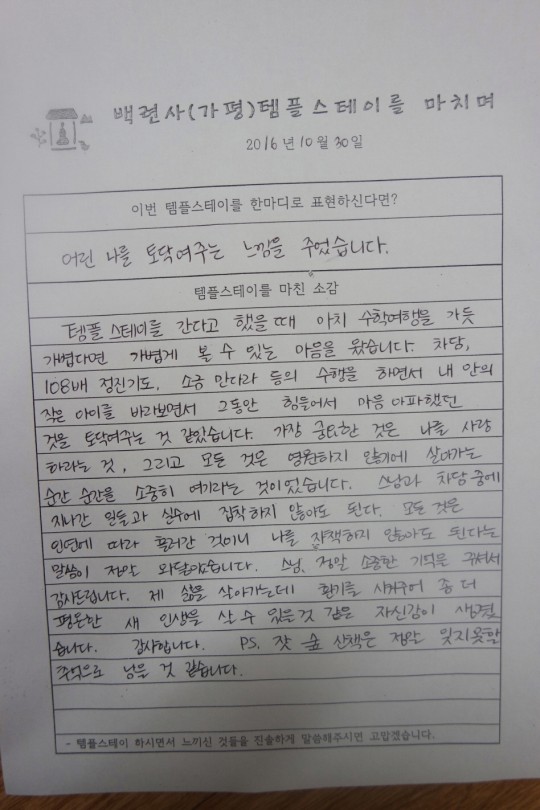 백련사(가평)템플스테이를 마치며
2016년 10월 30일
이번 템플스테이를 한마디로 표현하신다면?
어린 나를 토닥여주는 느낌을 주었습니다.
템플스테이를 마친 소감
템플 스테이를 간다고 했을때 마치 수학여행을 가듯
가볍다면 가볍게 볼 수 있는 마음을 왔습니다. 차담,
108배 정진기도, 소금 만다라 등의 수행을 하면서 내 안의
작은 아이를 바라보면서 그동안 힘들어서 마음 아파했던
것을 토닥여주는 것 같았습니다. 가장 중요한 것은 나를 사랑
하라는 것, 그리고 모든 것은 영원하지 않기에 살아가는
순간 순간을 소중히 여기라는 것이었습니다. 스님과 차담 중에
지나간 일들과 실수에 집착하지 않아도 된다. 모든것은
인연에 따라 흘러간 것이니 나를 자책하지 않아도 된다는
말씀이 정말 와닿았습니다. 스님, 정말 소중한 기억을 주셔서
감사드립니다. 제 삶을 살아가는데 환기를 시켜주어 좀 더
평온한 새 인생을 살 수 있을것 같은 자신감이 생겼
습니다. 감사합니다. PS. 잣 숲 산책은 정말 잊지못할
추억으로 남을 것 같습니다.
- 템플스테이 하시면서 느끼신 것들을 진솔하게 말씀해주시면 고맙겠습니다.